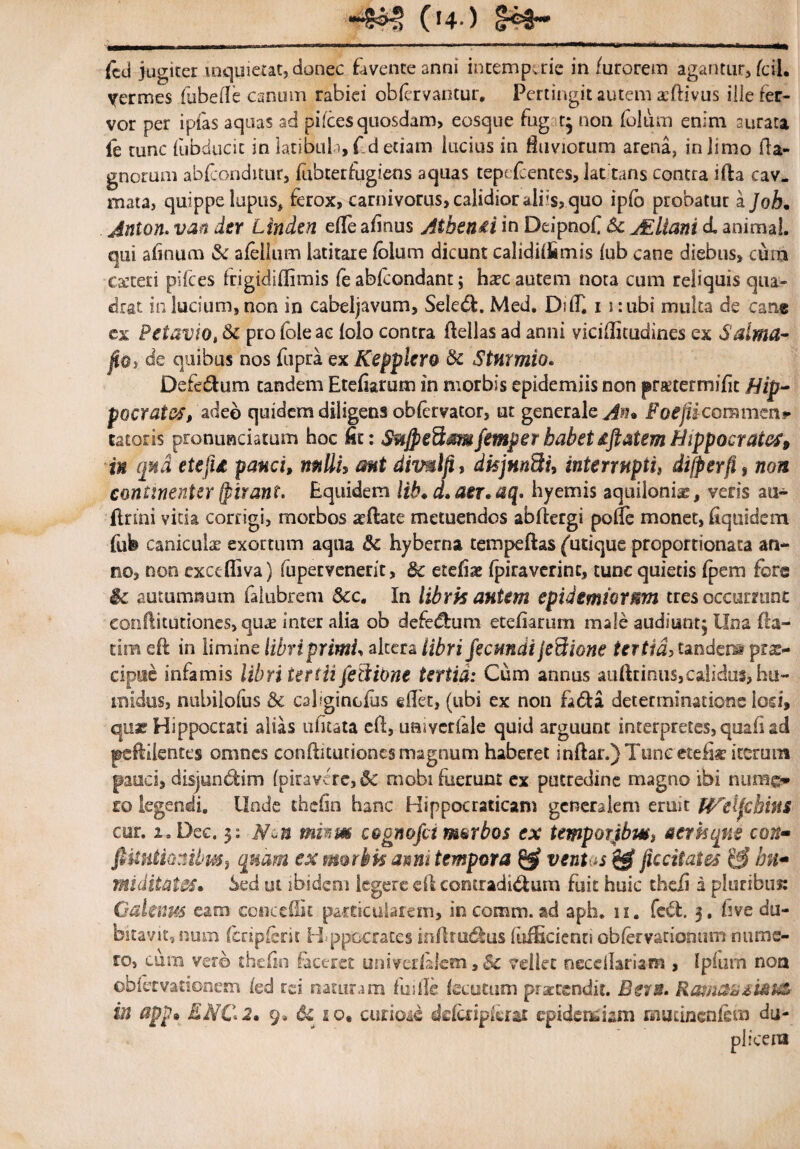 (14.)
ſed jugiter inquietat, donec favente anni intemperie in furorem agantur, ſcil.
vermes ſubeſſe canum rabiei obſervantur. Pertingit autem æſtivus ille fer-
vor per ipſas aquas ad piſces quosdam, eosque fugat; non ſolùm enim aurata
ſe tunc ſubducit in latibula, ſed etiam lucius in fluviorum arenâ, in limo ſta-
gnorum abſconditur, ſubterfugiens aquas tepeſcentes, latitans contra iſta cav_
mata, quippe lupus, ferox, carnivorus, calidior aliis, quo ipſo probatur à Job.
Anton. van der Linden eſſe aſinus Athenæi in Deipnoſ. & Æliani d. animal.
qui aſinum & aſellum latitare ſolum dicunt calidiſſimis ſub cane diebus, cùm
cæteri piſces frigidiſſimis ſe abſcondant; hæc autem nota cum reliquis qua-
drat in lucium, non in cabeljavum, Selećt. Med. Diſſ. 11: ubi multa de cane
ex Petavio, & pro ſole ac ſolo contra ſtellas ad anni viciſſitudines ex Salma-
ſio, de quibus nos ſuprà ex Kepplero & Sturmio.
Defećtum tandem Eteſiarum in morbis epidemiis non prætermiſit Hip-
pocrates, adeò quidem diligens obſervator, ut generale An. Foeſii commen-
tatoris pronunciatum hoc ſit: Suſpectam ſemper habet æſtatem Hippocrates,
in quâ eteſiæ pauci, nulli, aut divulſi, disjunćti, interrupti, diſperſi, non
continenter ſpirant. Equidem lib. d. aer. aq. hyemis aquiloniæ, veris au-
ſtrini vitia corrigi, morbos æſtate metuendos abſtergi poſſe monet, ſiquidem
ſub caniculæ exortum aqua & hyberna tempeſtas (utique proportionata an-
no, non exceſſiva) ſupervenerit, & eteſiæ ſpiraverint, tunc quietis ſpem fore
& autumnum ſalubrem &c. In libris autem epidemiorum tres occurrunt
conſtitutiones, quæ inter alia ob defećtum eteſiarum male audiunt; Una ſta-
tim eſt in limine libri primi, altera libri ſecundi ſećtione tertiâ, tandem præ-
cipuè infamis libri tertii ſećtione tertiâ: Cùm annus auſtrinus, calidus, hu-
midus, nubiloſus & caliginoſus eſſet, (ubi ex non fačtâ determinatione loci,
quæ Hippocrati aliàs uſitata eſt, univerſale quid arguunt interpretes, quaſi ad
peſtilentes omnes conſtitutiones magnum haberet inſtar.) Tunc eteſiæ iterum
pauci, disjunćtim ſpiravêre, & mobi fuerunt ex putredine magno ibi nume-
ro legendi. Unde theſin hanc Hippocraticam generalem eruit Welſchius
cur. 2. Dec. 3: Non minus cognoſci morbos ex temporibus, aerisque con-
ſtitutionibus, quàm ex morbis anni tempora & ventos & ſiccitates & hu-
miditates. Sed ut ibidem legere eſt contradićtum fuit huic theſi à pluribus:
Galenus eam conceſſit particularem, in comm. ad aph. 11. ſećt. 3. ſive du-
bitavit, num ſcripſerit Hippocrates inſtrućtus ſufficienti obſervationum nume-
ro, cùm verò theſin faceret univerſalem, & vellet neceſſariam, ipſum non
obſervationem ſed rei naturam fuiſſe ſecutum prætendit. Bern. Ramazzinus
in app. ENC. 2. 9. & 10. curiosè deſcripſerat epidemiam mutinenſem du-
plicem